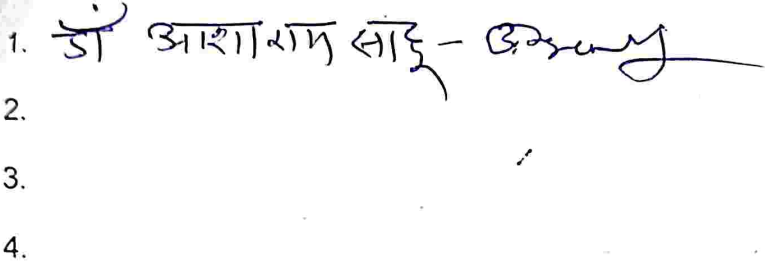 1. डॉ आशाराम साहू -
2.
3.
4.